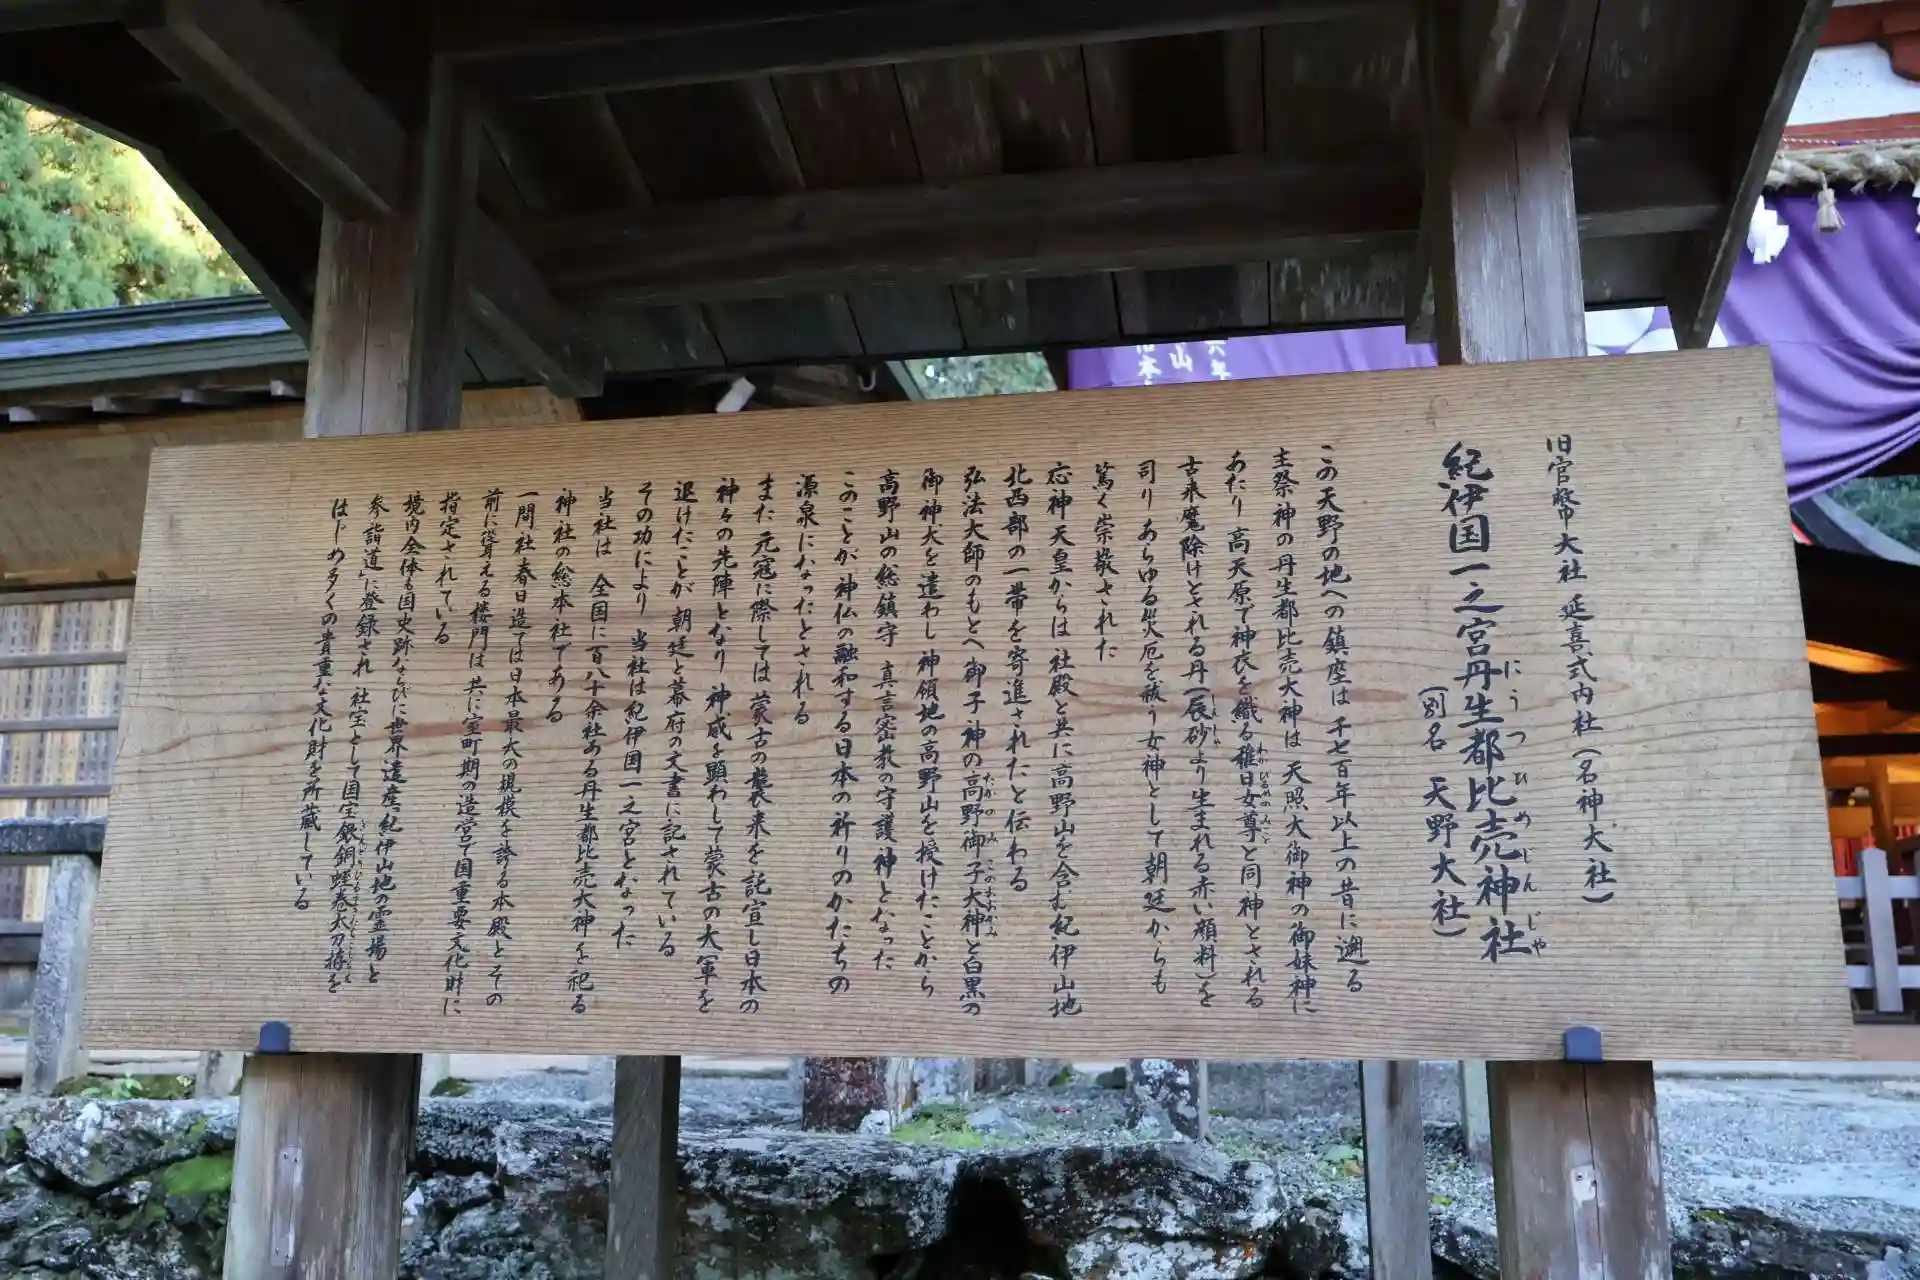 旧官幣大社 延喜式内社（名神大社）
紀伊国一之宮丹生都比売神社
にうつひめじんじゃ
（別名 天野大社）
この天野の地への鎮座は 千七百年以上の昔に遡る
主祭神の丹生都比売大神は 天照大御神の御妹神に
あたり 高天原で神衣を織る稚日女尊と同神とされる
わかひるめのみこと
古来魔除けとされる丹（辰砂より生まれる赤い顔料）を
しんしゃ
司り あらゆる災厄を祓う女神として朝廷からも
篤く崇敬された
応神天皇からは 社殿と共に高野山を含む紀伊山地
北西部の一帯を寄進されたと伝わる
弘法大師のもとへ御子神の高野御子大神と白黒の
たかのみこのおおかみ
御神犬を遣わし 神領地の高野山を授けたことから
高野山の総鎮守 真言密教の守護神となった
このことが 神仏の融和する日本の祈りのかたちの
源泉になったとされる
また 元寇に際しては 蒙古の襲来を託宣し日本の
神々の先陣となり 神威を顕わして蒙古の大軍を
退けたことが 朝廷と幕府の文書に記されている
その功により 当社は紀伊国一之宮となった
当社は 全国に百八十余社ある丹生都比売大神を祀る
神社の総本社である
一間社春日造では日本最大の規模を誇る本殿とその
前に聳える楼門は 共に室町期の造営で国重要文化財に
指定されている
境内全体も国史跡ならびに世界遺産「紀伊山地の霊場と
参詣道」に登録され 社宝として国宝銀銅蛭巻太刀拵を
ぎんどうひるまきたちこしらえ
はじめ多くの貴重な文化財を所蔵している